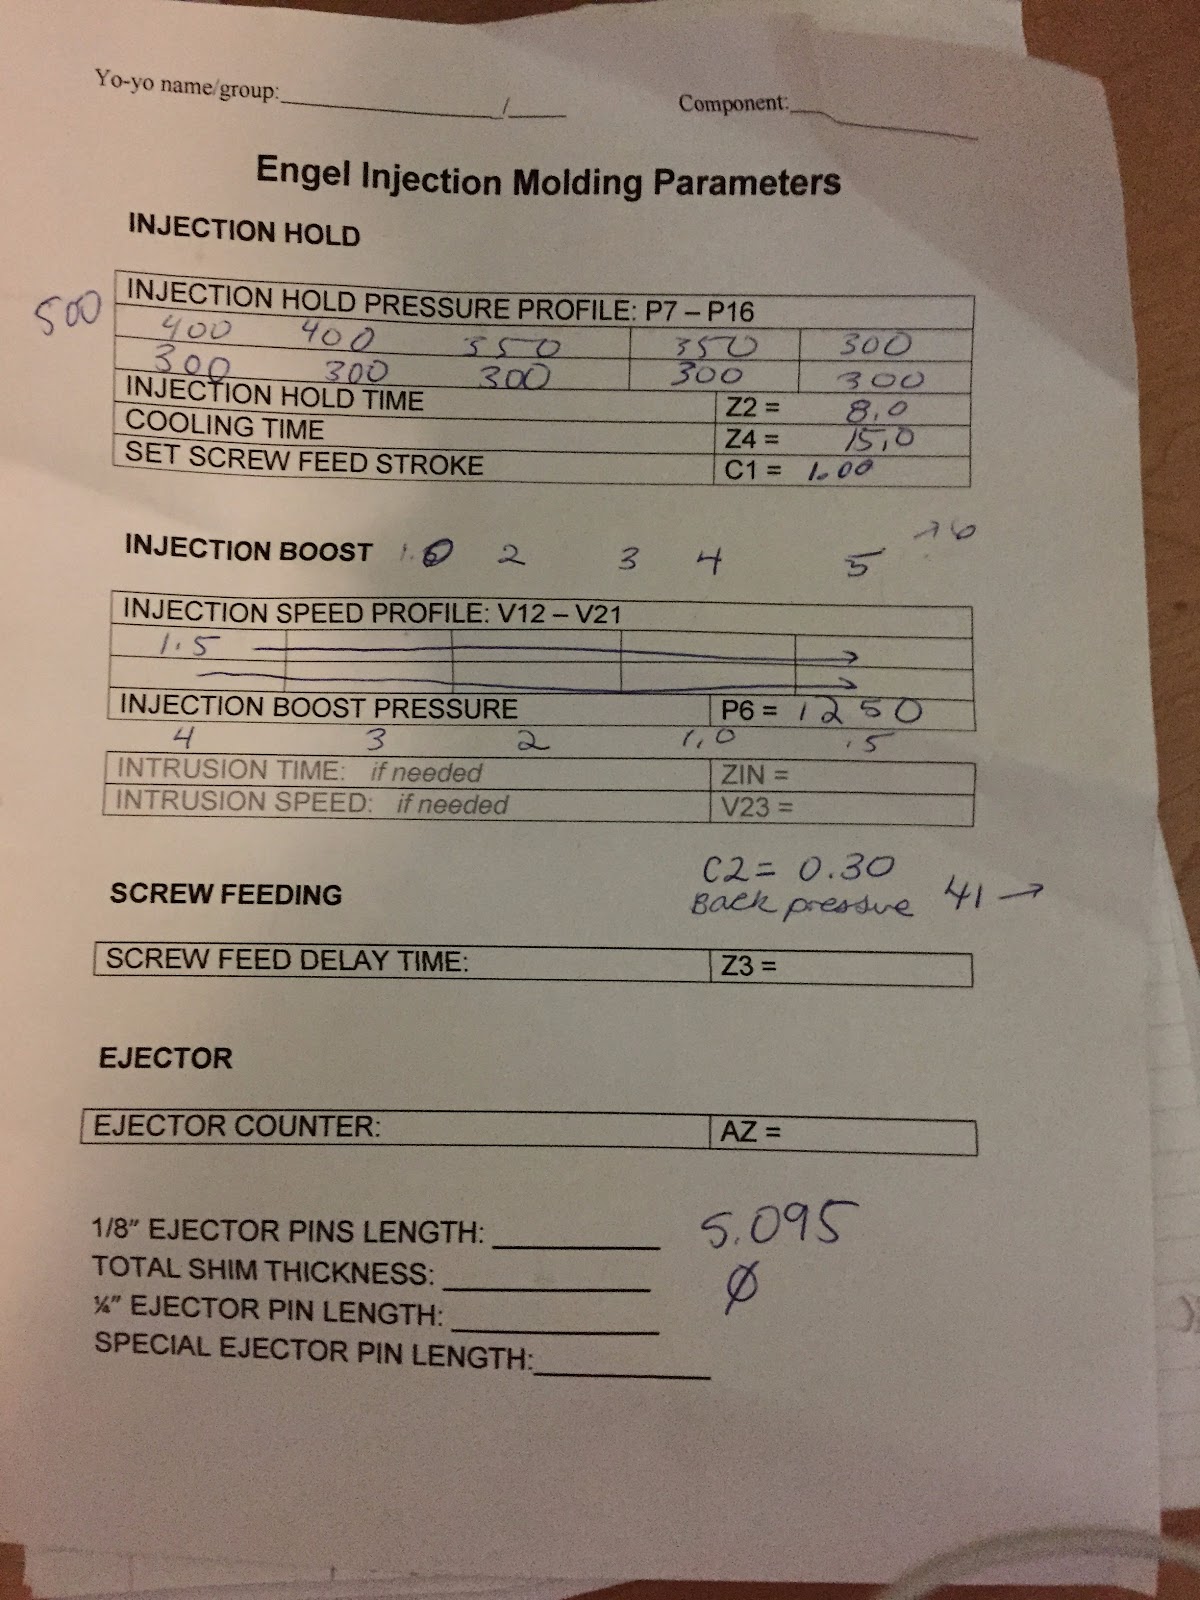 Yo-yo name/group:____________/____ Component:____________
Engel Injection Molding Parameters
INJECTION HOLD
INJECTION HOLD PRESSURE PROFILE: P7 – P16
500 400 400 350 350 300
300 300 300 300 300
INJECTION HOLD TIME Z2 = 8.0
COOLING TIME Z4 = 15.0
SET SCREW FEED STROKE C1 = 1.00
INJECTION BOOST 2 3 4 5 →6
INJECTION SPEED PROFILE: V12 – V21
1.5 →
→
INJECTION BOOST PRESSURE P6 = 1250
4 3 2 1.0 .5
INTRUSION TIME: if needed ZIN =
INTRUSION SPEED: if needed V23 =
C2 = 0.30
SCREW FEEDING Back pressure 41 →
SCREW FEED DELAY TIME: Z3 =
EJECTOR
EJECTOR COUNTER: AZ =
1/8" EJECTOR PINS LENGTH: __________ 5.095
TOTAL SHIM THICKNESS: __________ Ø
¼" EJECTOR PIN LENGTH: __________
SPECIAL EJECTOR PIN LENGTH: __________